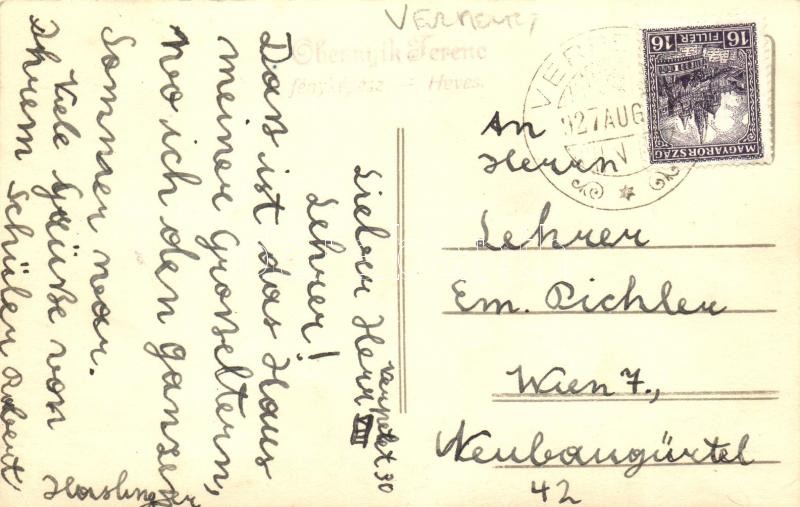 VERPELÉT
Obernyik Ferenc
fényképész — Heves.
VER
927 AUG
MAGYARORSZÁG
16 FILLÉR 16
Verpelét 30
VIII
Lieber Herr
Lehrer!
Das ist das Haus
meiner Großeltern,
wo ich den ganzen
Sommer war.
Viele Grüße von
Ihrem Schüler Robert
Haslinger
An
Herrn
Lehrer
Em. Pichler
Wien 7.,
Neubaugürtel
42